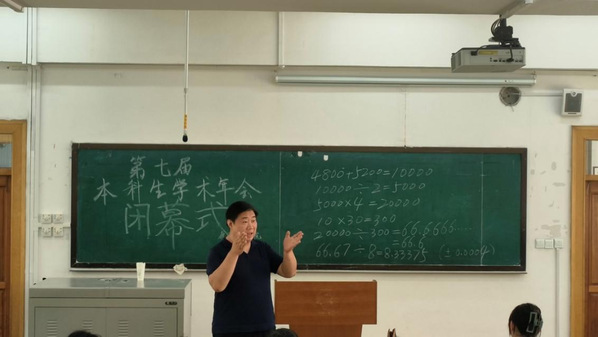 第七届
本科生学术年会
闭幕式
4800+5200=10000
10000÷2=5000
5000×4=20000
10×30=300
20000÷300=66.6666...
=66.6
66.67÷8=8.33375 (±0.0004)